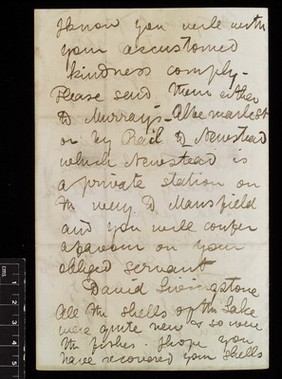 I know you will with
your accustomed
kindness comply -
Please send them either
to Murray's - Albemarle St
or by Rail to Newstead
which Newstead is
a private station on
the way to Mansfield
and you will confer
a favour on your
obliged servant
David Livingstone
All the shells of the Lake
were quite new & so were
the fishes. I hope you
have recovered your shells